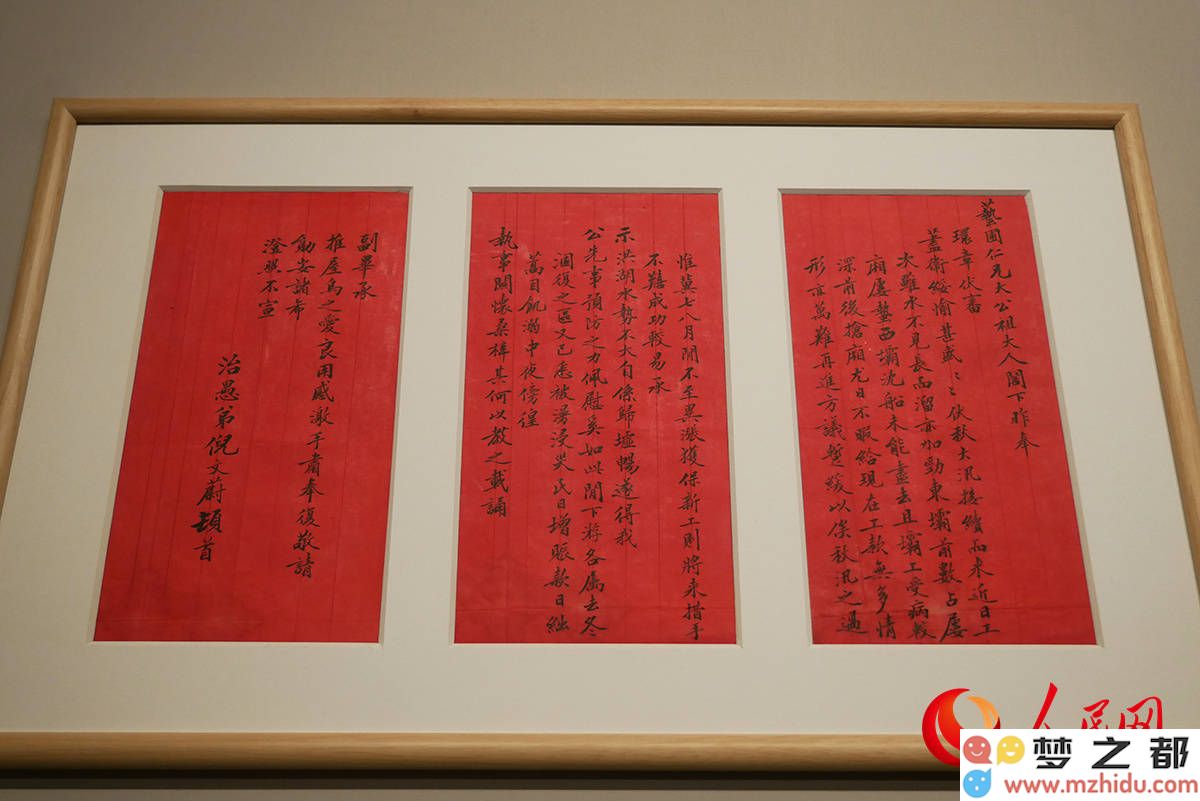 藝圃仁兄大公祖大人閣下昨奉
環章伏審
藎衛綏愉甚盛〻伏秋大汛接續而來近日工
次雖水不見長而溜亦加勁東壩前數占屢
廂屢蟄西壩沈船未能盡去且壩工受病較
深前後搶廂尤日不暇給現在工款無多情
形亦萬難再進方議暫緩以俟秋汛之過
惟冀七八月間不至異漲獲保新工則將來措手
不難成功較易承
示洪湖水勢不大自係歸墟暢遂得我
公先事預防之力佩慰奚如以閒下游各屬去冬
涸復之區又已悉被湯浸災民日增賑款日絀
蒿目飢溺中夜傍徨
執事關懷桑梓其何以教之載誦
副畢承
推屋烏之愛良用感激手肅奉復敬請
勛安諸希
澄照不宣
治愚弟倪文蔚頓首
人民网
梦之都
www.mzhidu.com